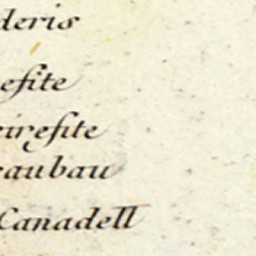 deris
efite
eirefite
eaubau
Canadell